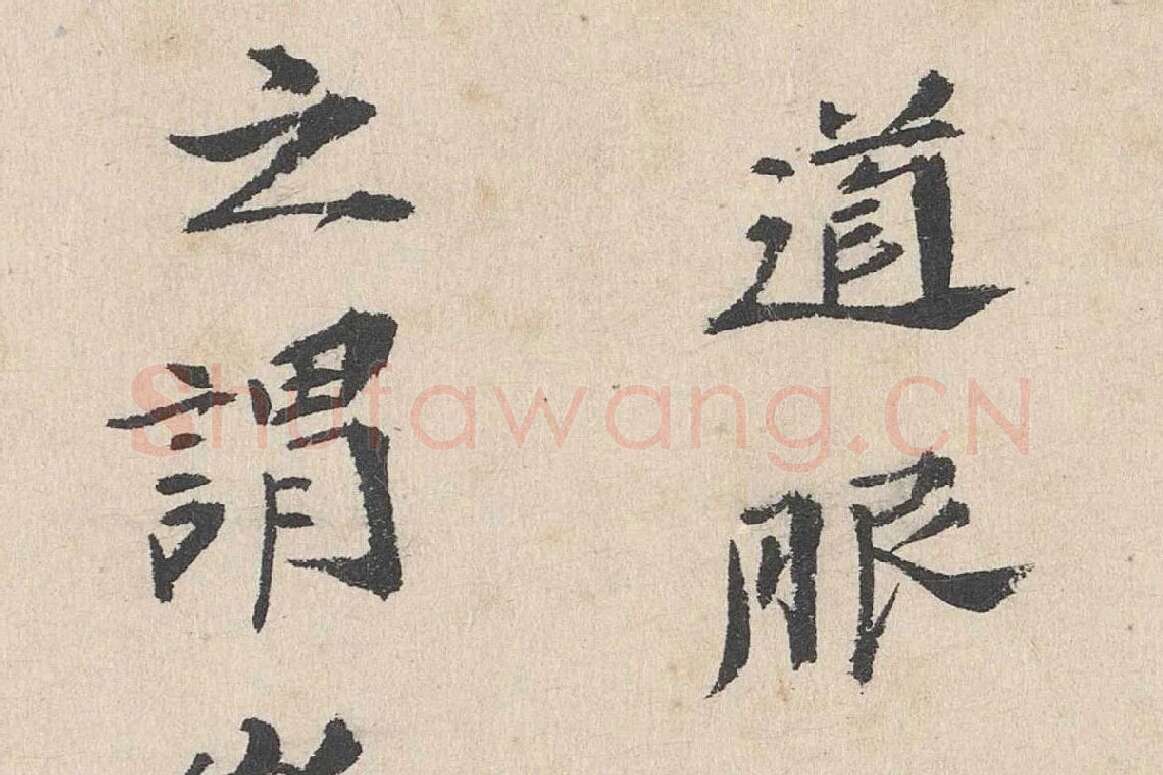 道眼
之謂
Shufawang.CN